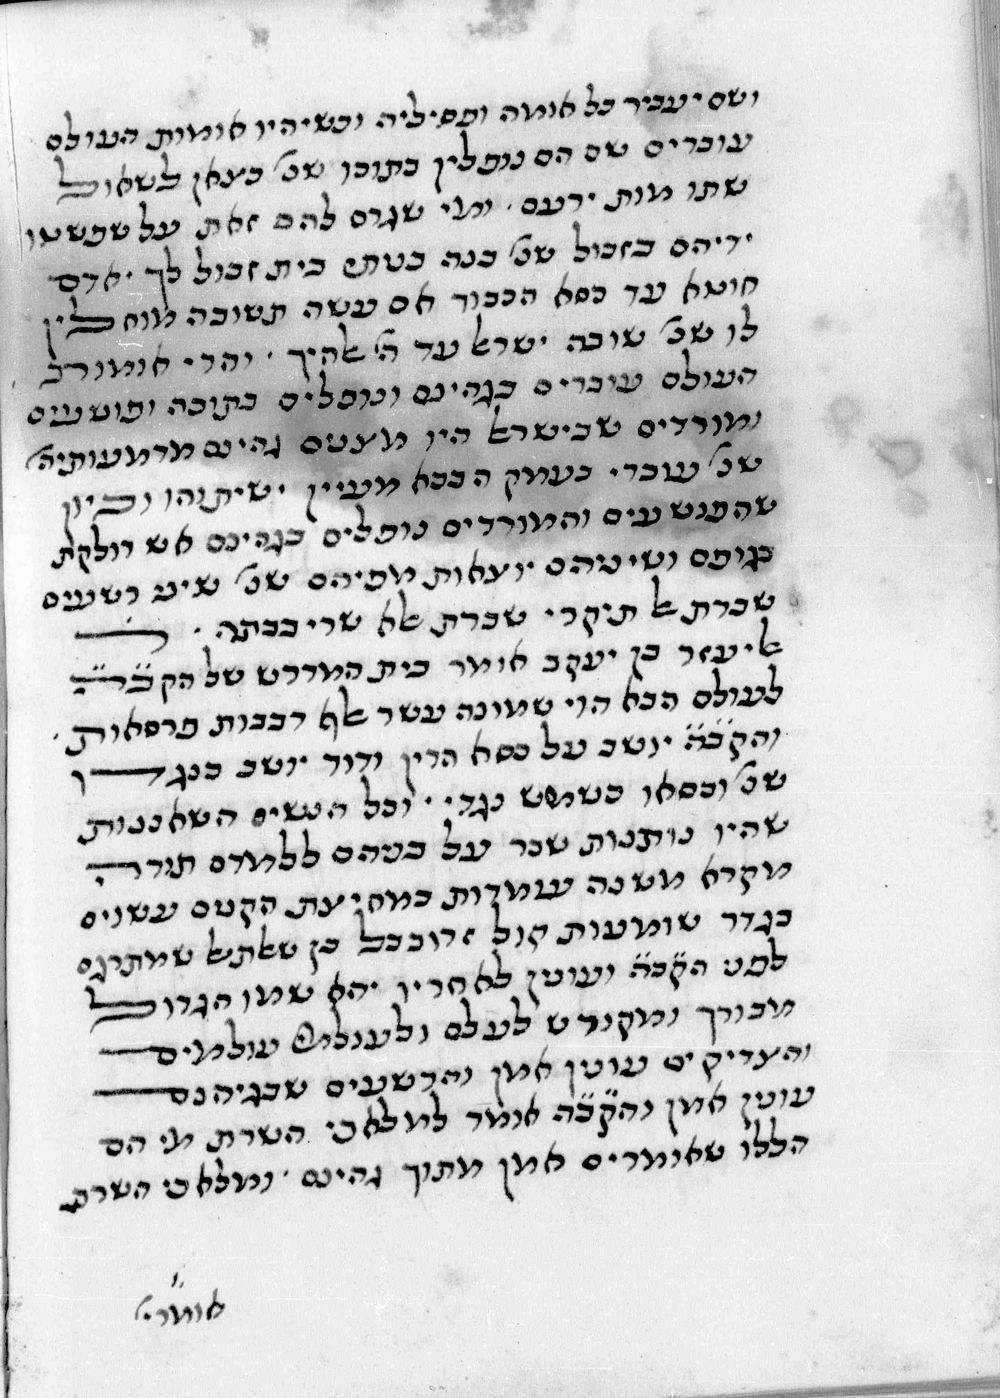 ושם יעביר כל אומה ופסיליה וכשיהיו אומות העולם
עוברים שם הם נופלין בתוכו שנ' כצאן לשאול
שתו מות ירעם ׳ ומי שגרם להם זאת על שפשטו
ידיהם בזבול שנ' בנה בניתי בית זבול לך ׳ אדם
חוטא עד כסא הכבוד אם עשה תשובה מוחלין
לו שנ' שובה ישראל עד ה' אלהיך ׳ והרי אומות
העולם עוברים בגהינם ונופלים בתוכה ופושעים
ומורדים שבישראל היו מצננים גהינם מדמעותיהן
שנ' עוברי בעמק הבכא מעיין ישיתוהו וכיון
שהפושעים והמורדים נופלים בגהינם אש דולקת
בגופם ושיניהם יוצאות מפיהם שנ' שיני רשעים
שברת אל תיקרי שברת אלא שריבבתה ׳ ר'
אליעזר בן יעקב אומר בית המדרש של הקב״ה
לעולם הבא הוי שמונה עשר אלף רבבות פרסאות ׳
והקב״ה יושב על כסא הדין ודוד יושב כנגדו
שנ' וכסאו כשמש נגדי ׳ וכל הנשים השאננות
שהיו נותנות שכר על בניהם ללמדם תורה
מקרא משנה עומדות במחיצת הקנים עשוים
כגדר שומעות קול זרובבל בן שאלתיאל שמתרגם
לפני הקב״ה ועונין לאחריו יהא שמו הגדול
מבורך ומקודש לעלם ולעולמי עולמים
והצדיקים עונין אמן והרשעים שבגיהנם
עונין אמן והקב״ה אומר למלאכי השרת מי הם
הללו שאומרים אמן מתוך גהינם ׳ ומלאכי השרת
אומרי'